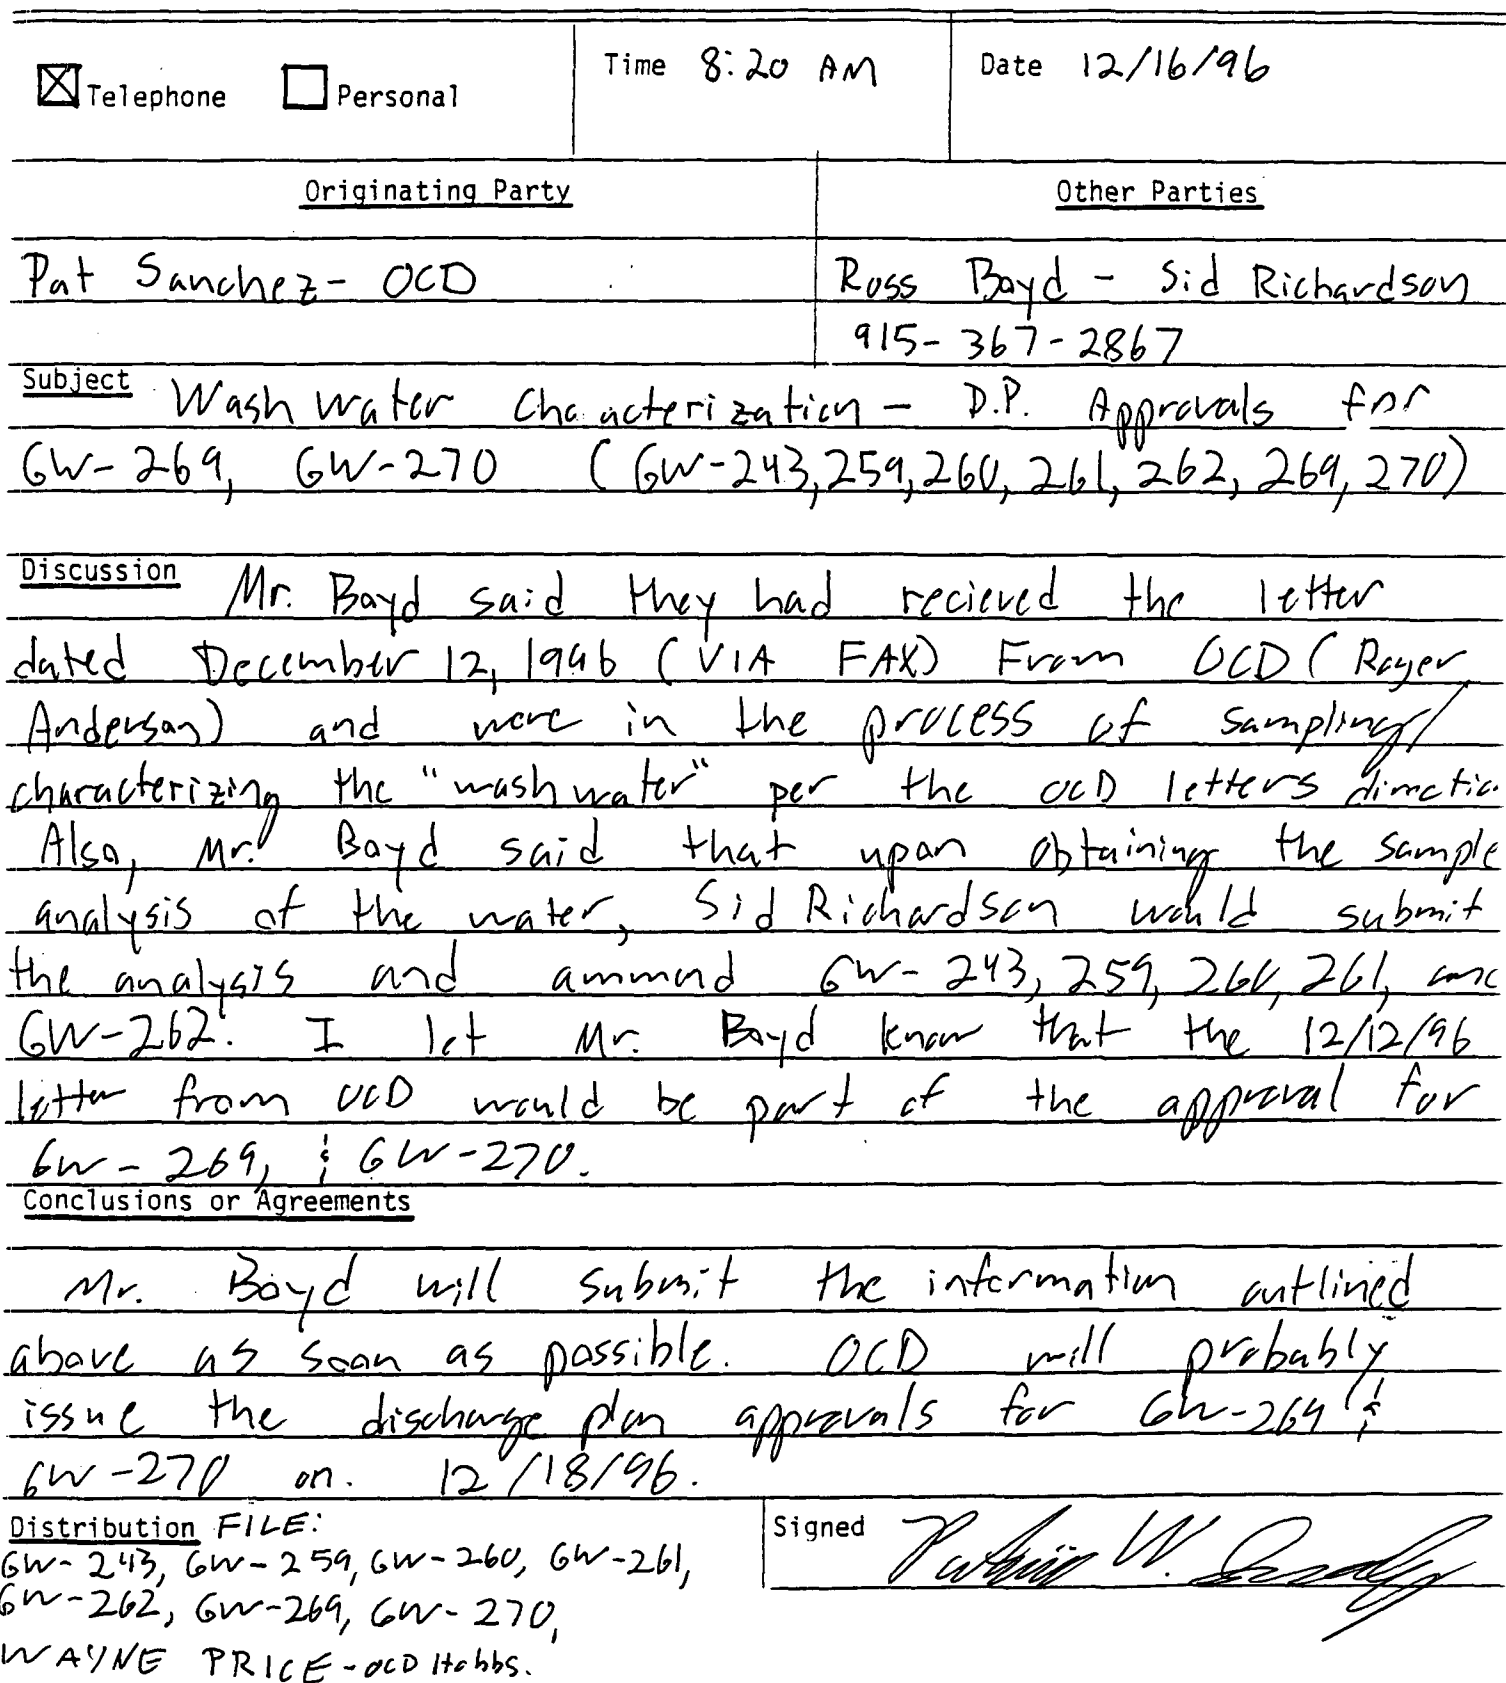 ☒ Telephone ☐ Personal Time 8:20 AM Date 12/16/96
Originating Party Other Parties
Pat Sanchez - OCD Ross Boyd - Sid Richardson
915-367-2867
Subject Wash water Characterization - D.P. Approvals for
GW-269, GW-270 (GW-243,259,260,261,262,269,270)
Discussion Mr. Boyd said they had recieved the letter
dated December 12, 1996 (VIA FAX) From OCD (Roger
Anderson) and were in the process of sampling/
characterizing the "wash water" per the OCD letters directio
Also, Mr. Boyd said that upon obtaining the sample
analysis of the water, Sid Richardson would submit
the analysis and ammend GW-243, 259, 260, 261, and
GW-262. I let Mr. Boyd know that the 12/12/96
letter from OCD would be part of the approval for
GW-269, & GW-270.
Conclusions or Agreements
Mr. Boyd will submit the information outlined
above as soon as possible. OCD will probably
issue the discharge plan approvals for GW-269 &
GW-270 on. 12/18/96.
Distribution FILE: Signed Patricio W. Sanchez
GW-243, GW-259, GW-260, GW-261,
GW-262, GW-269, GW-270,
WAYNE PRICE - OCD Hobbs.